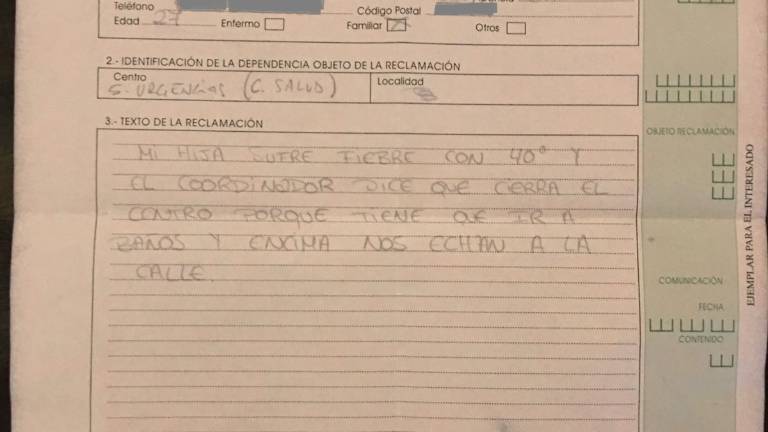 Teléfono
Código Postal
Edad 27 Enfermo Familiar Otros
2.- IDENTIFICACIÓN DE LA DEPENDENCIA OBJETO DE LA RECLAMACIÓN
Centro
S. URGENCIAS (C. SALUD)
Localidad
3.- TEXTO DE LA RECLAMACIÓN
MI HIJA SUFRE FIEBRE CON 40º Y
EL COORDINADOR DICE QUE CIERRA EL
CENTRO PORQUE TIENE QUE IR A
BAÑOS Y ENCIMA NOS ECHAN A LA
CALLE.
OBJETO RECLAMACIÓN
COMUNICACIÓN
FECHA
CONTENIDO
EJEMPLAR PARA EL INTERESADO